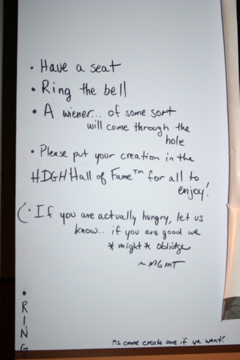 • Have a seat
• Ring the bell
• A wiener... of some sort
will come through the
hole
• Please put your creation in the
HDGH Hall of Fame™ for all to
enjoy!
(• If you are actually hungry, let us
know... if you are good we
*might* oblidge
~MGMT
• RING
come create one if ya want!